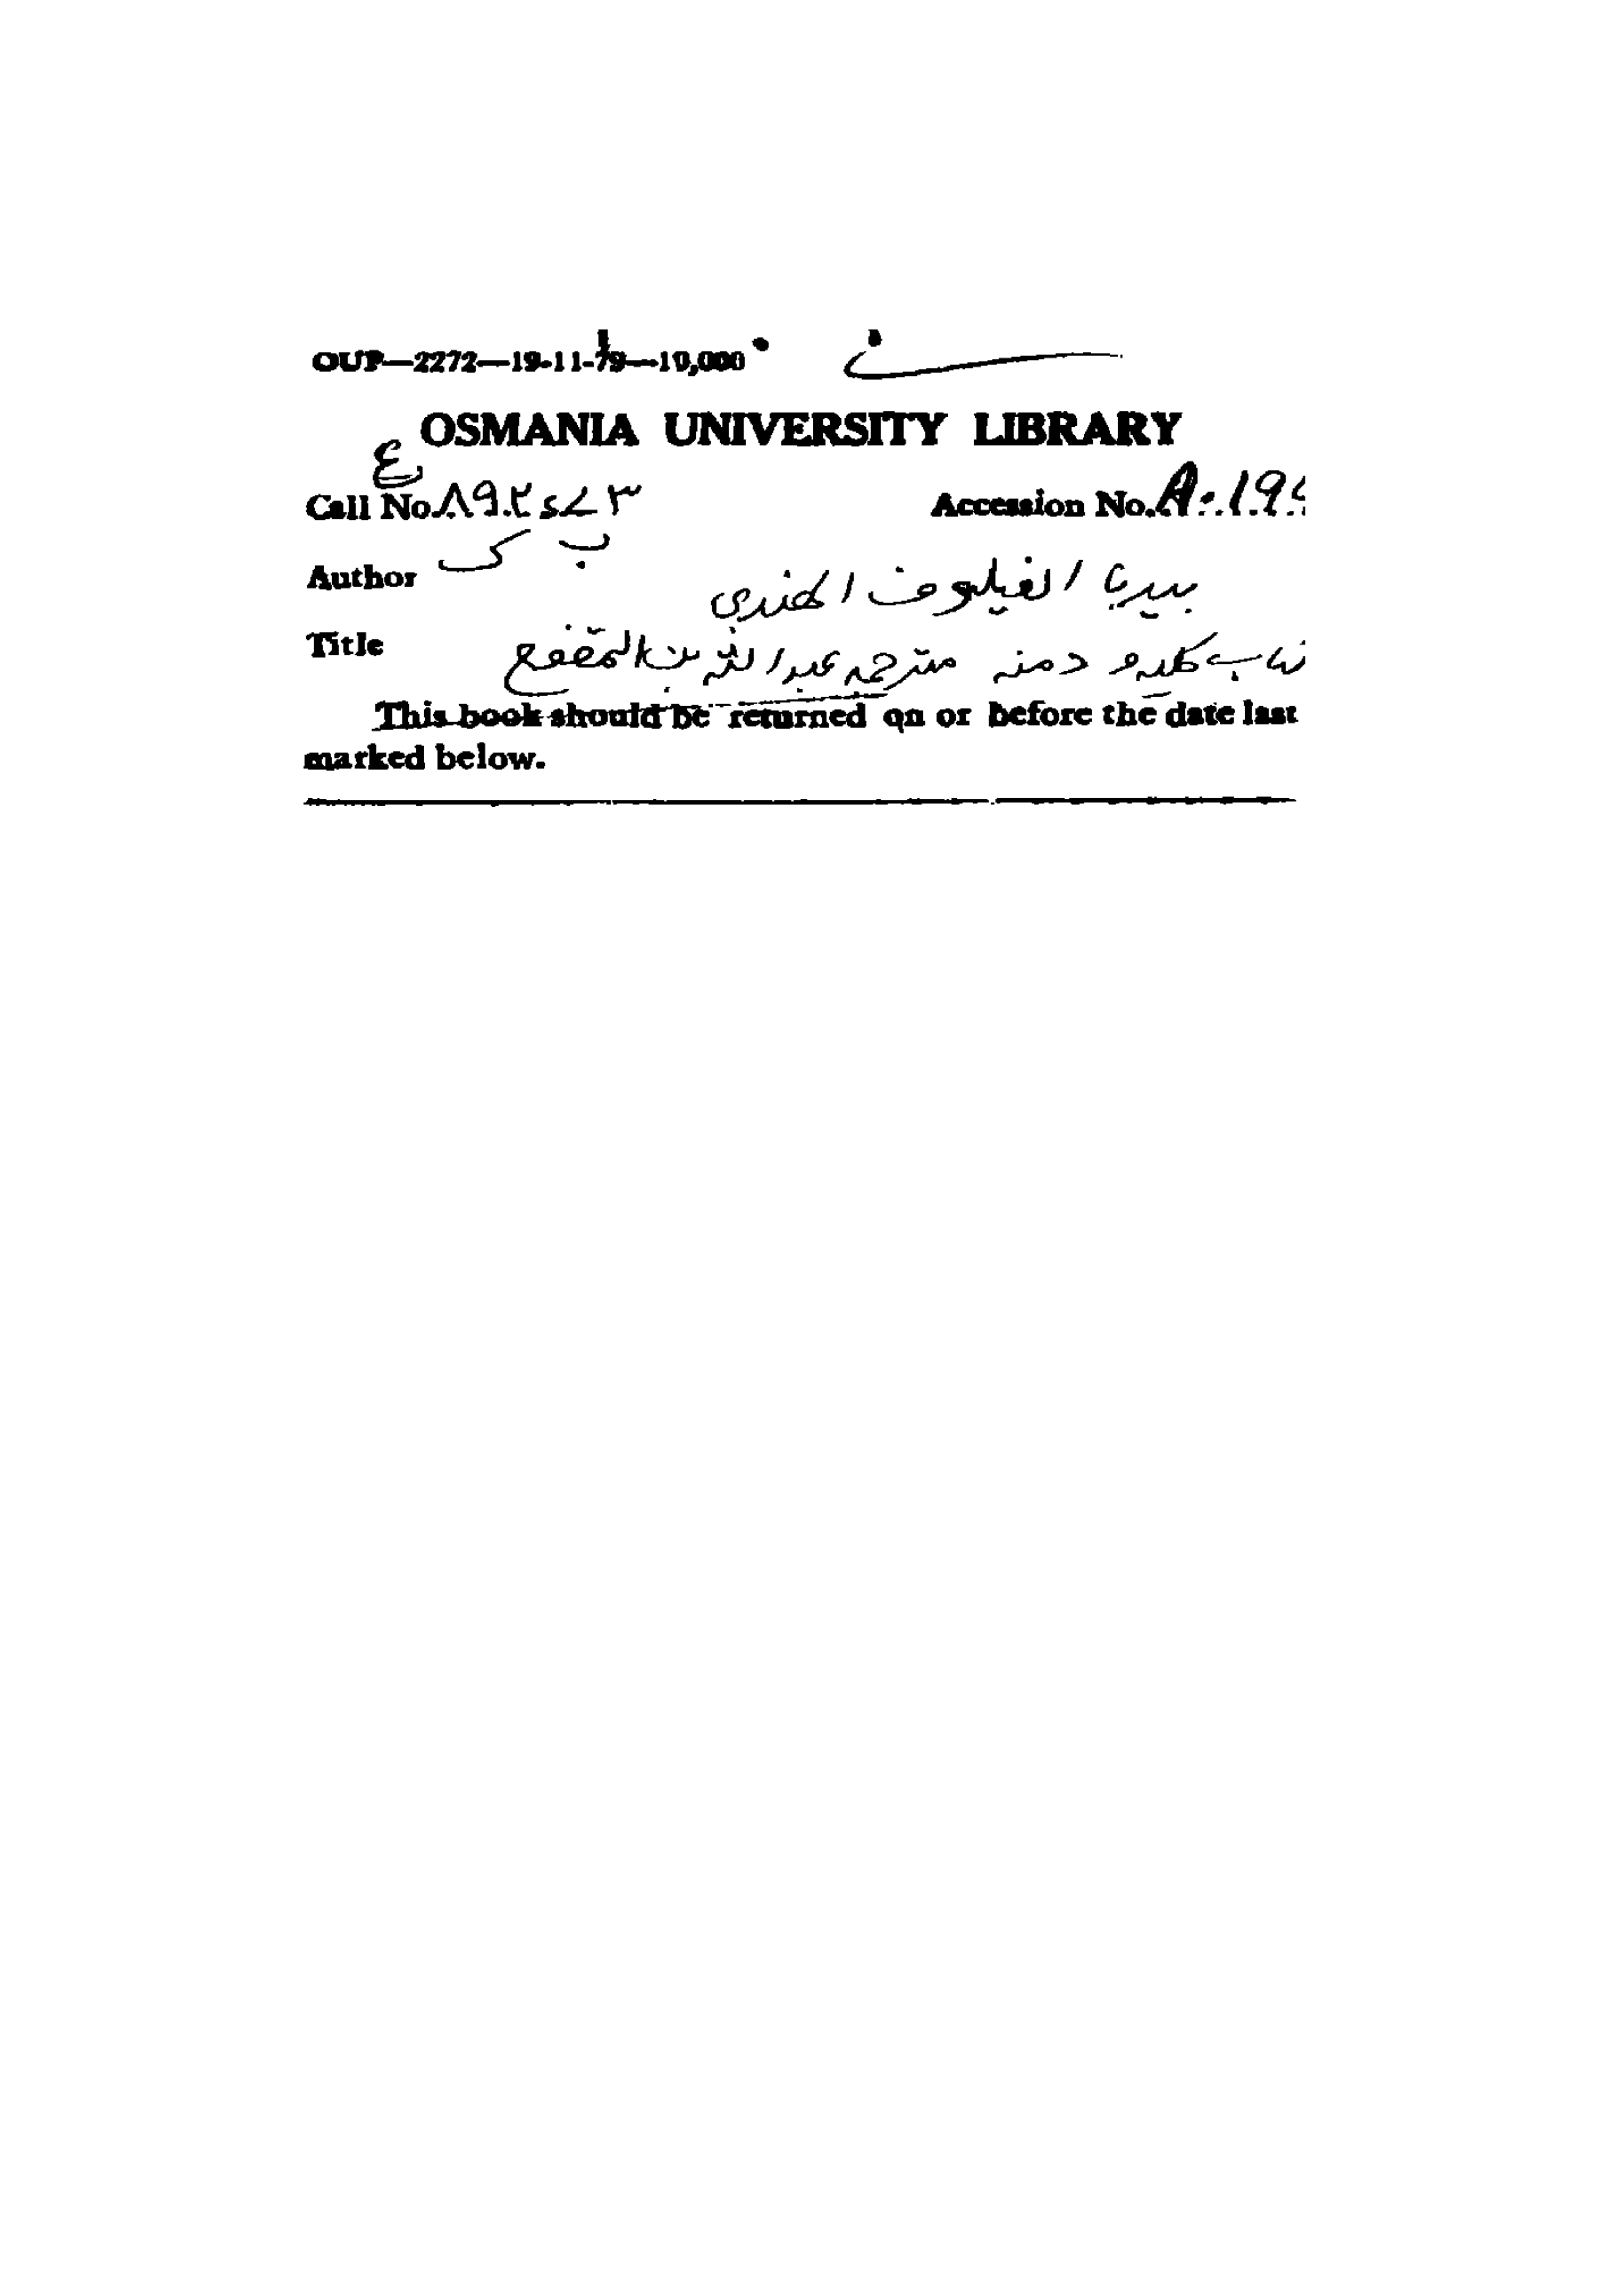 OUP—2272—19-11-79—10,000
OSMANIA UNIVERSITY LIBRARY
ع
Call No. ٨٩٢٫٧٣ Accession No. A.19
ب ک
Author بيدبا الفيلسوف الهندى
Title كتاب كليله و دمنه مترجمه عبد الله بن المقفع
This book should be returned on or before the date last
marked below.